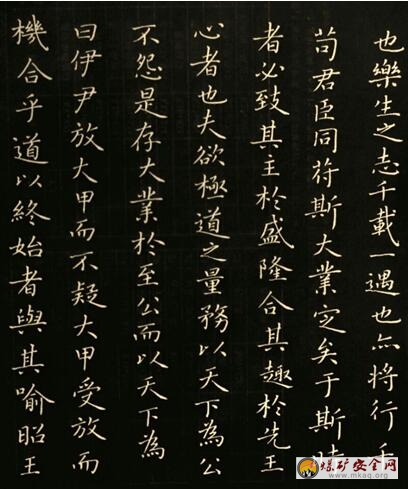 也樂生之志千載一遇也亦將行千
苟君臣同符斯大業定矣于斯時
者必致其主於盛隆合其趣於先王
心者也夫欲極道之量務以天下為公
不怨是存大業於至公而以天下為
曰伊尹放大甲而不疑大甲受放而
機合乎道以終始者與其喻昭王
煤矿安全网
www.mkaq.org